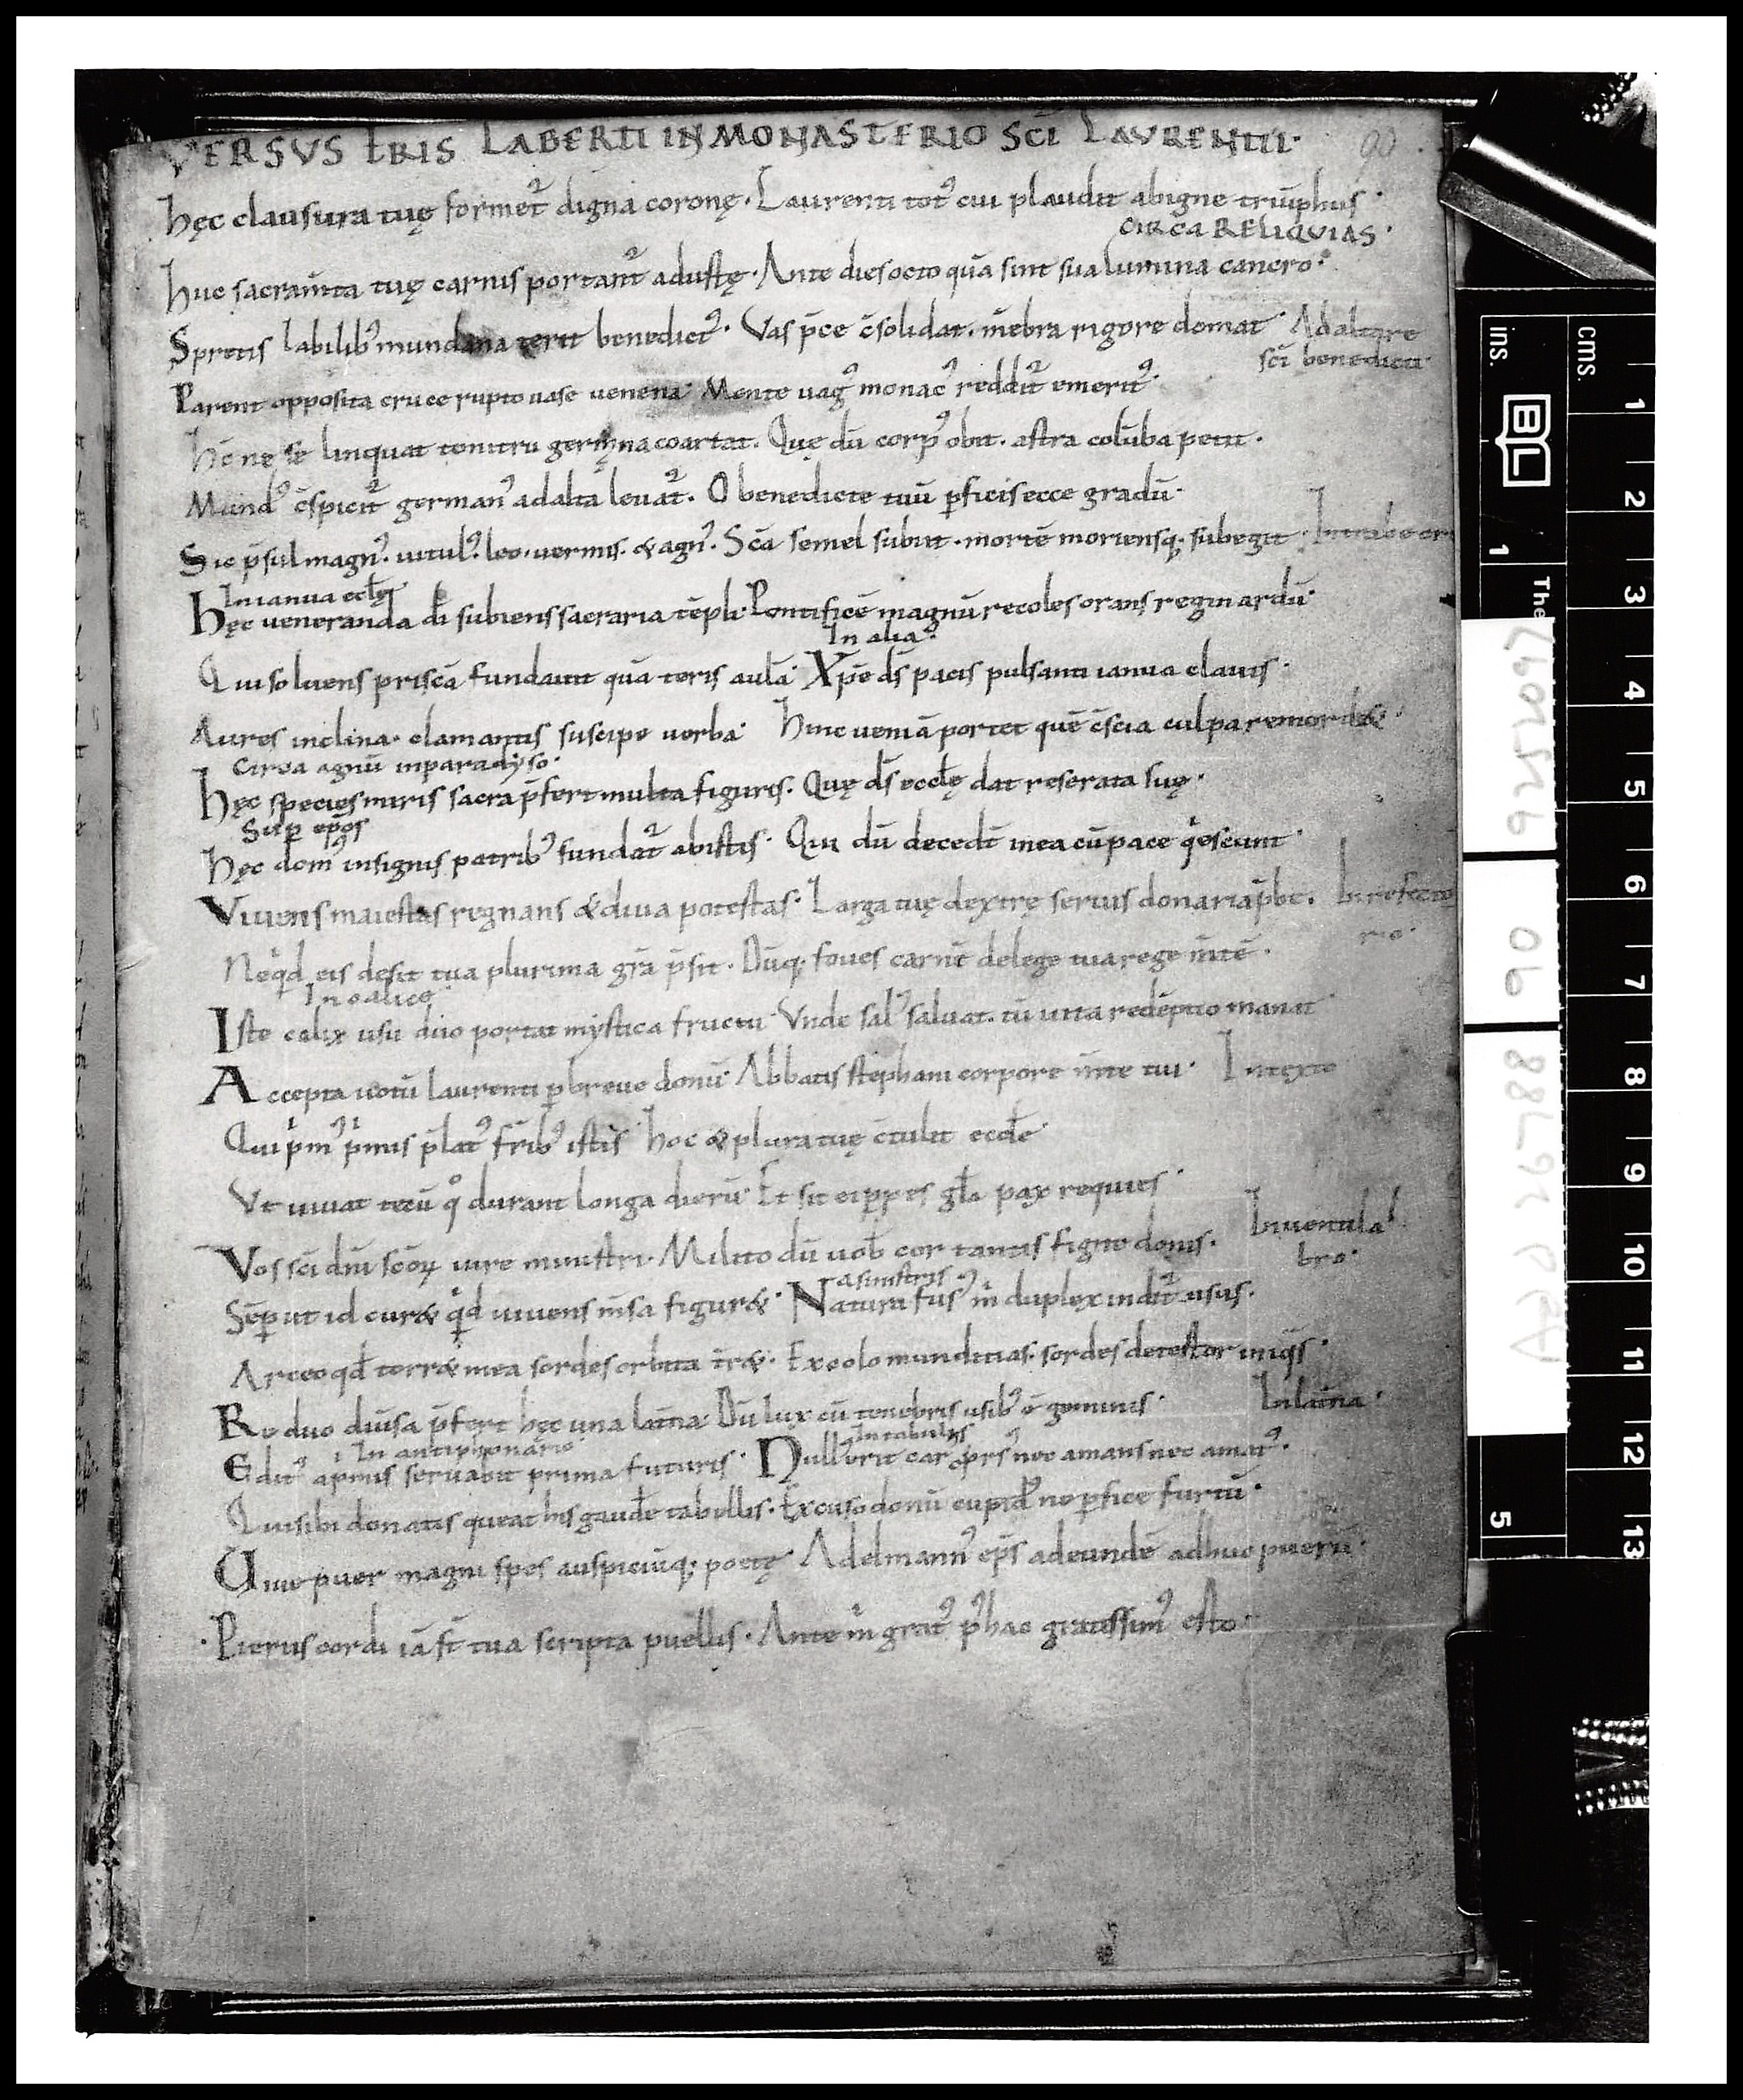 VERSUS LBIS LABERTI IN MONASTERIO SCI LAVRENTII· 90
hęc clausura tuę formet᷑ digna coronę· Laurenti tot᷒ cui plaudit ab igne triūphus·
CIRCA RELIQVIAS·
huc sacram̄ta tuę carnis portant᷑ adustę· Ante dies octo quā sint sua lumina cancro·
Spretis labilib᷒ mundana terit benedict᷒· Vas p̄ce c̄solidat· m̄ebra rigore domat· Ad altare
sci benedicti·
Parent opposita cruce rupto uase uenena· Mente uag᷒ monac᷒ reddit᷑ emerit᷒·
hc̄ ne se linquat tonitru germana coartat· Quę dū corp᷒ obit· astra colūba petit·
Mund᷒ c̄spicit᷑ german᷒ ad alta leuat᷑· O benedicte tuū ꝑficis ecce gradū·
Sic p̄sul magn᷒· uitul᷒· leo· uermis· & agn᷒· Scā semel subiit· mortē moriensq; subegit·
In ianua ecclę
hęc ueneranda dī subiens sacraria tēpli· Pontificē magnū recoles orans reginardū·
In alia·
Qui soluens priscā fundauit quā teris aulā· Xp̄e ds̄ pacis pulsanti ianua clauis·
Aures inclina· clamantis suscipe uerba· hinc ueniā portet quē c̄scia culpa remordet·
Circa agnū in paradyso·
hęc species miris sacra p̄fert multa figuris· Quę ds̄ ecclę dat reserata suę·
Suꝑ ep̄os
hęc dom᷒ insignis patrib᷒ fundat᷑ ab istis· Qui dū decedt̄ mea cū pace qͥescunt·
Viuens maiestas regnans & diua potestas· Larga tuę dextrę seruis donaria p̄be· In refecto
rio·
Ne qͥd eis desit tua plurima grā p̄sit· Dūq; foues carnē delege tua rege m̄tē·
In calice
Iste calix usu duo portat mystica fructu· Vnde sal᷒ saluat· tū uita redēptio manat·
Accepta uotū Laurenti ꝑbreue donū· Abbatis stephani corpore m̄te tui· In texto
Qui pͥm᷒ pͥmis p̄lat᷒ fr̄ib᷒ istis· hoc & plura tuę c̄tulit eccłe·
Vt uiuat tecū qͦ durant longa dierū· Et sit ei ꝑpes gła pax requies·
Vos sci dn̄i scoꝝ iure ministri· Milito dū uob̄ cor tantis figite donis· In uentila
bro·
Sēꝑ ut id curæ qͥd uiuens m̄sa figuræ·
a sinistris
Natura fus᷒ m̄ duplex indit᷑ usus·
Arceo qd̄ terræ mea sordes orbita træ· Excolo munditias· sordes detestor iniqͣs·
Re duo diuisa p̄fert hęc una lat̄na· Dū lux cū tenebris usib᷒ ē geminis· In lat̄na·
In antiphonario
In tabulis
Edit᷒ a pͥmis seruabit prima futuris· Null᷒ erit car᷒ nec amans nec amat᷒·
Qui sibi donatis queat his gaudēe tabellis· Excuso donū cupid᷒ ne ꝑfice furtū·
Viue puer magni spes auspiciūq; poetę· Adelmann᷒ ep̄s ad eundē adhuc puerū·
·Pieriis cordi iā st̄ tua scripta puellis· Ante m̄ grat᷒ p᷒ hac gratissim᷒ esto·
ins.
cms.
1
2
3
4
5
6
7
8
9
10
11
12
13
1
5
BL
The
90